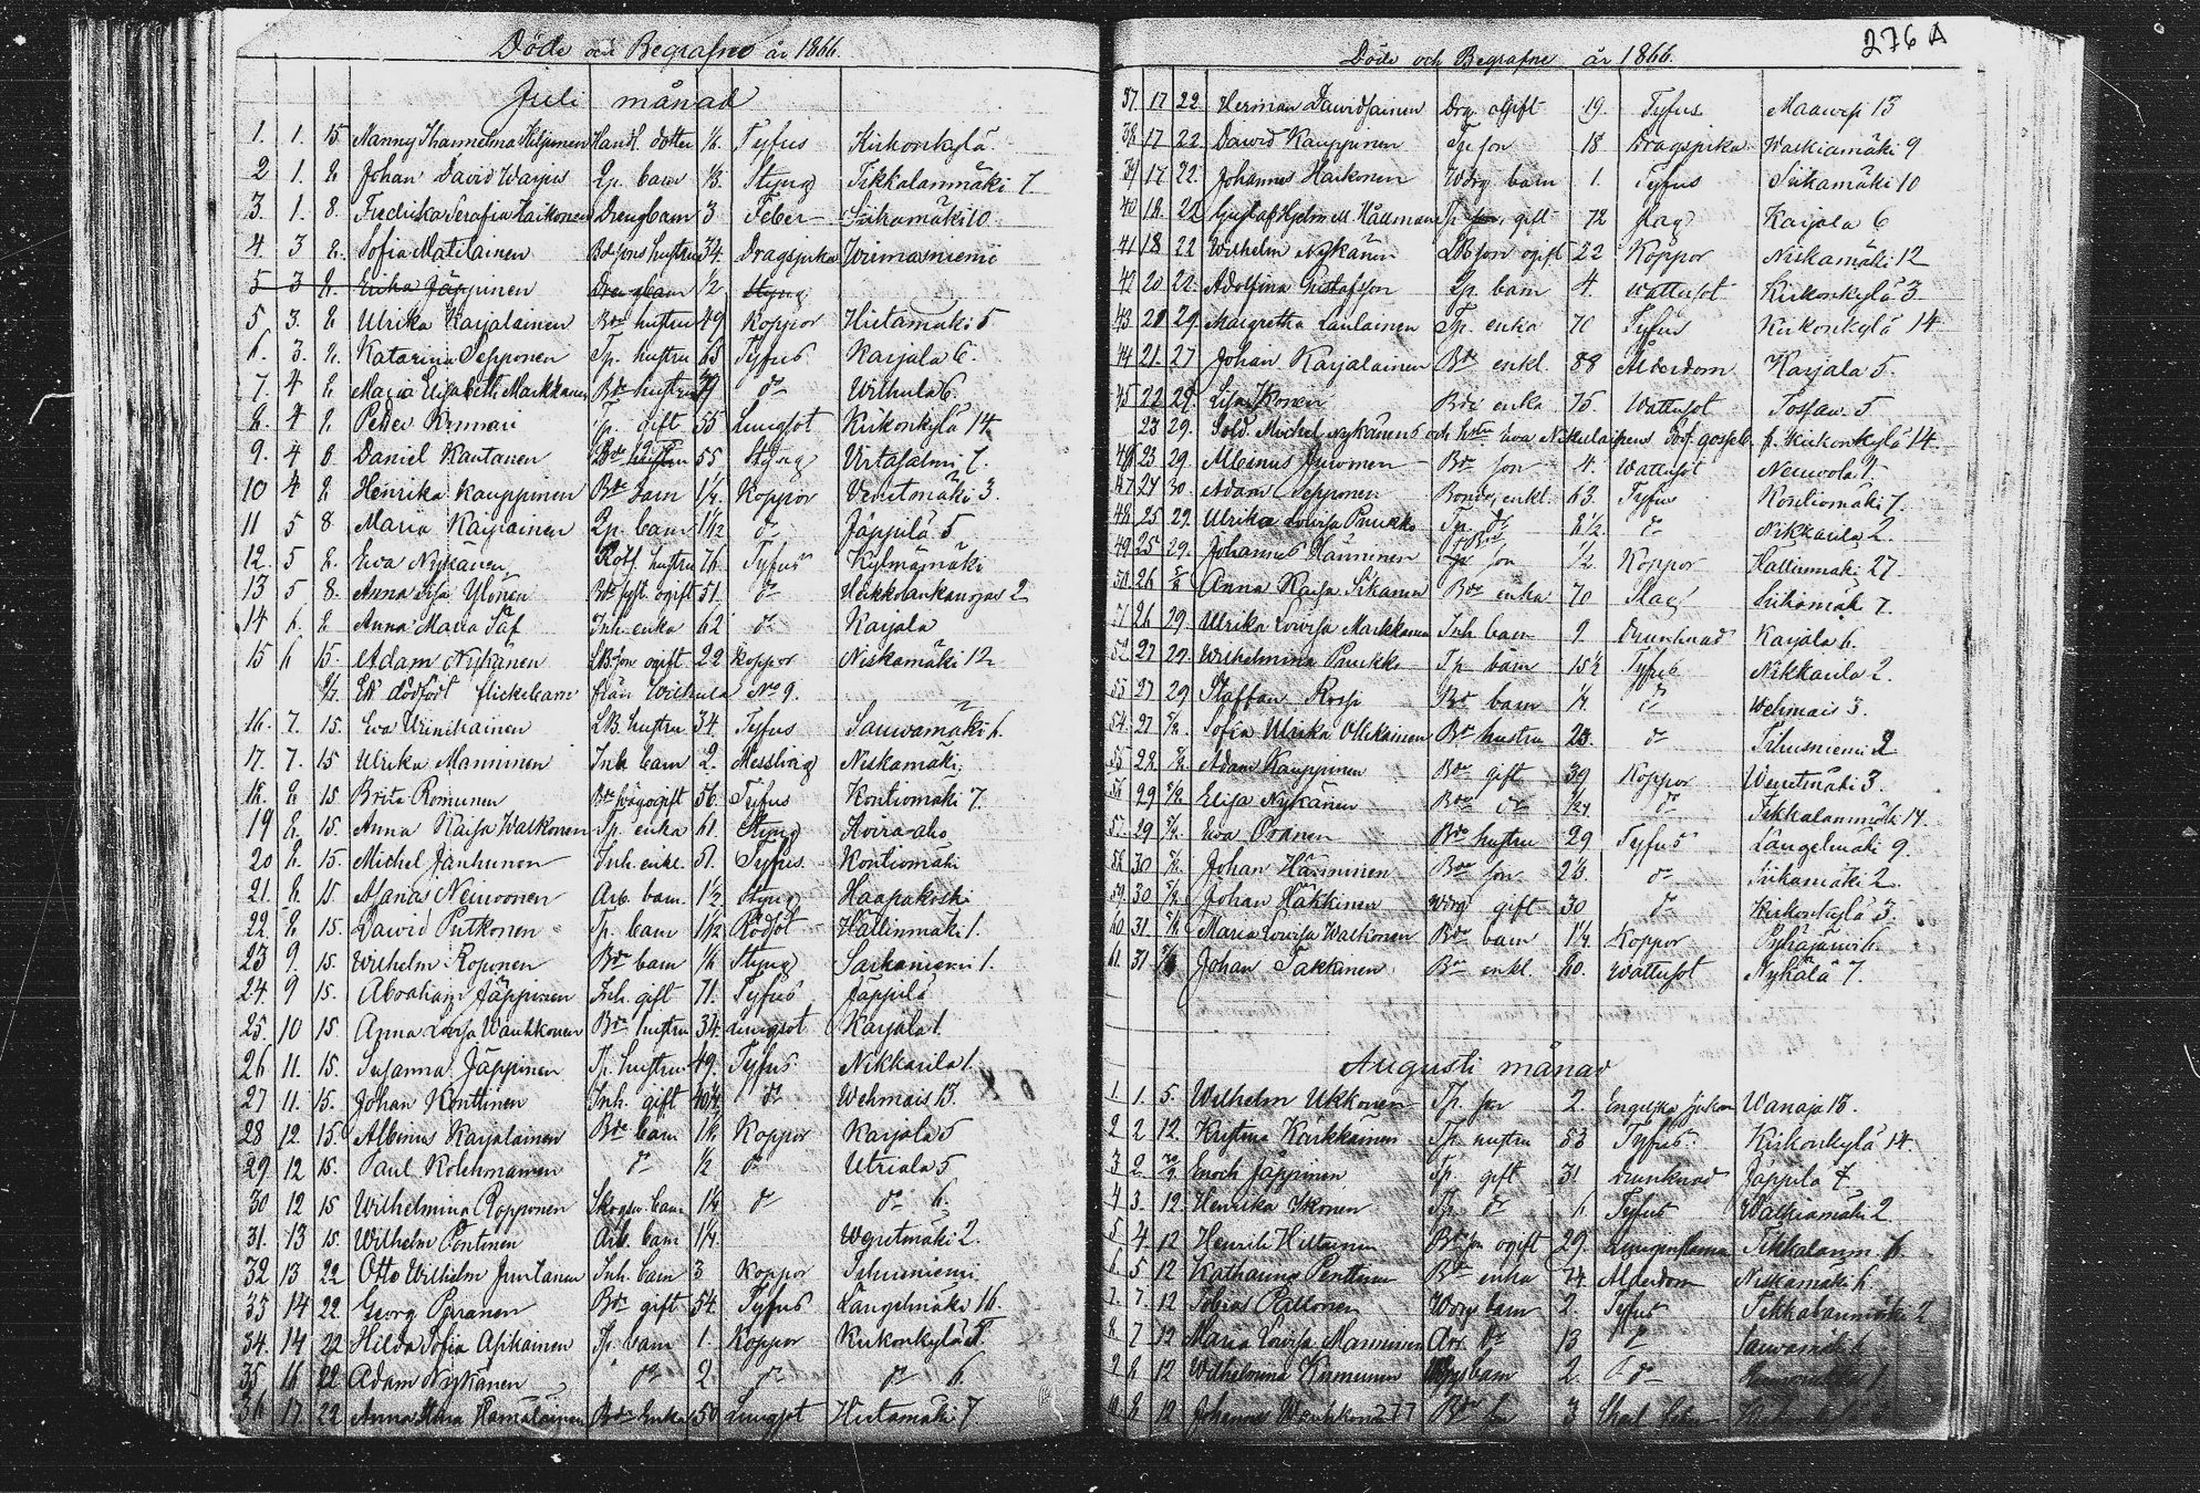 Döde och Begrafne år 1866.
Juli månad
1. 1. 15 Nanny Hiljunen Handl. dotter Tyfus Kirkonkylä
2 1. 8 Johan David Warpu Lp. barn 1/3 Styng Tikkalanmäki 7
3. 1 8. Fredrika Serafia Haikonen Drengbarn 3 Feber Siikamäki 10
4. 3 8. Sofia Matilainen hustru 34. Dragsjuka Wiimasniemi
5 3 8. Erika Jäppinen Drengbarn 1/2 Styng
5 3. 8 Ulrika Karjalainen Bde hustru 49 Koppor Hietamäki 5
6. 3. 8. Katarina Sepponen Tp. hustru 65 Tyfus Karjala 6.
7. 4 8 Maria Elisabeth Markkanen Bde hustru do Wilhula 6.
8. 4 8 Peder Tp. gift 55 Lungsot Kirkonkylä 14
9. 4 8 Daniel Kautanen Bde 55 Styng Urtasalmi 7.
10 4 8 Henrika Kauppinen Bde barn 1/4 Koppor Venetmäki 3.
11 5 8 Maria Kaipainen Lp. barn 1 1/12 do Jäppilä 5
12. 5 8. Ewa Nykänen Rotf. hustru 76 Tyfus Kylmämäki
13 5 8. Anna Lisa Ylönen ogift 51. do Heikkolankangas 2
14 6. 8 Anna Maria Säf Inh. enka 62 do Karjala
15 6 15. Adam Nykänen LBson ogift 22 Koppor Niskamäki 12
Ett dödfödt flickebarn från Wilhula No 9.
16. 7. 15. Ewa Wiinikainen LB. hustru 34. Tyfus Sauwamäki 6.
17. 7. 15 Ulrika Manninen Inh barn 2. Messling Niskamäki
18. 8 15 Brita Romunen 56. Tyfus Kontiomäki 7.
19 8. 15. Anna Kaisa Walkonen Tp. enka 61. Styng Koira-aho
20 8. 15. Michel Janhunen Inh. enkl. 51. Tyfus Kontiomäki
21. 8. 15. Asarias Neuvonen Arb. barn. 1 1/2 Styng Haapakoski
22. 8 15. Dawid Putkonen Tp. barn 1 1/2 Rödsot Hällinmäki 1.
23 9. 15. Wilhelm Roponen Bde barn 1/6 Styng Sarkaniemi 1.
24. 9 15. Abraham Jäppinen Inh. gift 71. Tyfus Jäppilä
25. 10 15. Anna Lovisa Wauhkonen Bde hustru 34. Lungsot Karjala 1.
26 11. 15. Susanna Jäppinen Tp. hustru 49. Tyfus Nikkarila 1.
27 11. 15. Johan Konttinen Inh. gift do Wehmais 13.
28 12. 15 Albinus Karjalainen Bde barn Koppor Karjala 5
29. 12 15. Paul Kolehmainen do 1/2 do Utriala 5
30 12 15 Wilhelmina Ropponen barn 1/4 do do 6.
31. 13 15. Wilhelm Pöntinen Arb. barn 1 1/4. Wenetmäki 2.
32 13 22 Otto Wilhelm Juntanen Inh. barn 3 Koppor Tihusniemi
33 14 22. Georg Pyränen Bde gift 54. Tyfus Längelmäki 16.
34. 14 22 Hilda Sofia Asikainen Tp. barn 1. Koppor Kirkonkylä
35 16 22 Adam Nykänen do 2 do do 6.
36 17. 22 Anna Stina Hämäläinen Bde Enka 50 Lungsot Hietamäki 7
276 A
Döde och Begrafne år 1866.
37. 17 22. Herman Dawidsainen Drg. ogift 19. Tyfus Maawesi 13
38 17 22. Dawid Kauppinen Tp. son 18 Dragsjuka Waskiamäki 9
39 17 22. Johannes Haikonen Wdrg. barn 1. Tyfus Siikamäki 10
40 18. 22 Gustaf Hjelm ell. Hållman Tp. gift 72 Slag Karjala 6
41 18 22 Wilhelm Nykänen LBson ogift 22 Koppor Niskamäki 12
42 20 22. Adolfina Gustafsson Lp. barn 4. Wattusot Kirkonkylä 3
43. 21 29. Margretha Laulainen Tp. enka 70 Tyfus Kirkonkylä 14
44 21. 27 Johan Karjalainen Bde enkl. 88 Ålderdom Karjala 5.
45 22 29. Lisa Ikonen Bde enka 75. Wattusot 5
23 29. Sold. Michel Nykänens och hstru Ewa Nikulaisens Kirkonkylä 14
46 23 29. Albinus Juvonen Bde son 4. Wattusot Neuwola 4
47 24 30. Adam Sepponen Bondes enkl. 63. Tyfus Kontiomäki 7.
48 25 29. Ulrika Lovisa Puukko Tp. do 8 1/2. do Nikkarila 2.
49 25 29. Johannes Hänninen son 1/2. Koppor Hällinmäki 27
50. 26 5/8 Anna Kaisa Siikanen Bde enka 70 Slag Siikamäki 7.
51 26 29 Ulrika Lovisa Markkanen Inh barn 9 Drunknad Karjala 6.
52 27 29 Wilhelmina Puukko Tp. barn 15 1/2 Tyfus Nikkarila 2.
53 27 29 Staffan Rossi Bde barn 1/4 do Wehmais 3.
54. 27 5/8 Sofia Ulrika Ollikainen Bde hustru 23. do Tihusniemi 2
55 28 5/8. Adam Kauppinen Bde gift 39 Koppor Wenetmäki 3.
56 29 5/8 Elisa Nykänen Bde do 1/24 do Tikkalanmäki 14.
57. 29 5/8. Ewa Oranen Bde hustru 29 Tyfus Längelmäki 9.
58 30 5/8. Johan Hänninen Bde son 23. do Siikamäki 2.
59. 30 5/8 Johan Häkkinen Wdrg gift 30 do Kirkonkylä 3.
60 31. 5/8. Maria Lovisa Walkonen Bde barn 1 1/4. Koppor Pyhäjärwi 6.
61. 31 5/8 Johan Takkinen Bde enkl. 80. Wattusot Nykälä 7.
Augusti månad
1. 1. 5. Wilhelm Ukkonen Tp. son 2. Engelska sjukan Wanaja 13.
2 2 12. Kristina Kärkkäinen Tp. hustru 53 Tyfus Kirkonkylä 14.
3 2 Enoch Jäppinen Tp. gift 31 Drunknad Jäppilä 4
4 3. 12. Henrika Ikonen Tp. do 6 Tyfus Waskiamäki 2
5 4. 12 Henrik Hiltunen Bde son ogift 29. Lunginflama Tikkalanm. 6.
6. 5 12 Katharina Penttinen Bde enka 74 Ålderdom Niskamäki 6
7. 7. 12 Tobias Paltonen Wdrgs barn 2. Tyfus Tikkalanmäki 2
8. 7 12 Maria Lovisa Manninen Arb. do 13 do Sauwamäki 6
9 8 12 Wilhelmina Kinnunen barn 2. do
10 8 12 Johannes Wauhkonen Bde son 3
277